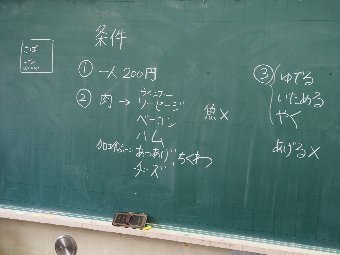 条件
① 一人 200円
② 肉 → ウィンナー
ソーセージ
ベーコン
ハム
魚 ×
ちくわ
チーズ
③ ゆでる
いためる
やく
あげる ×